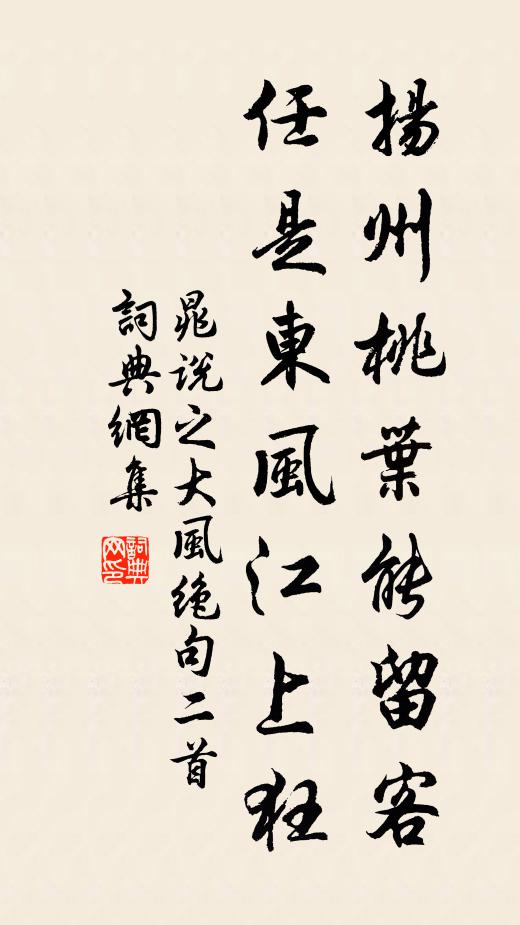 揚州桃葉能留客
任是東風江上狂
晁說之大風絶句二首
詞典網集
詞典网印